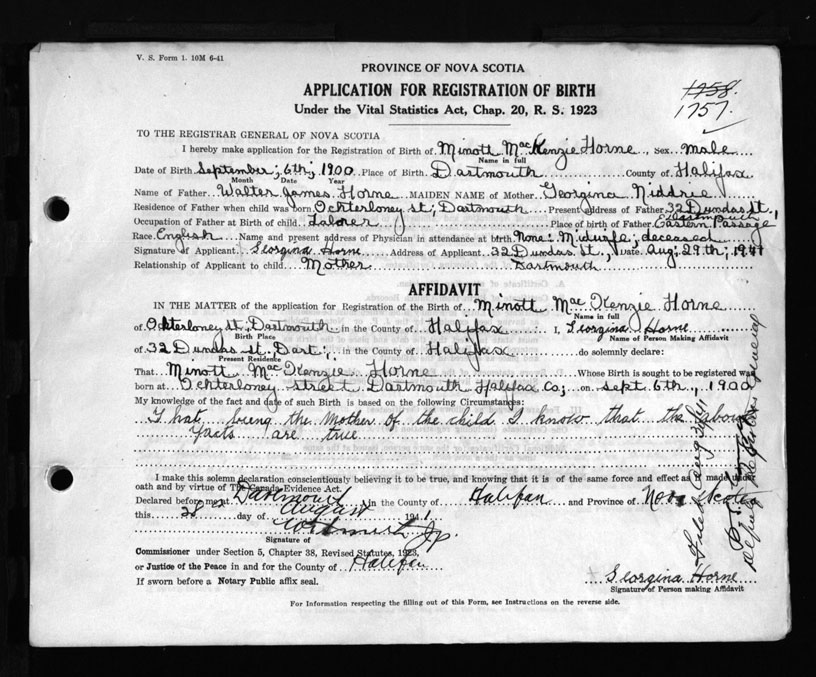 V. S. Form 1. 10M 6-41
PROVINCE OF NOVA SCOTIA
APPLICATION FOR REGISTRATION OF BIRTH
Under the Vital Statistics Act, Chap. 20, R. S. 1923
1958.
1757.
TO THE REGISTRAR GENERAL OF NOVA SCOTIA
I hereby make application for the Registration of Birth of Minott MacKenzie Horne, Sex male
Name in full
Date of Birth September; 6th; 1900 Place of Birth Dartmouth County of Halifax
Month Date Year
Name of Father Walter James Horne MAIDEN NAME of Mother Georgina Niddrie
Residence of Father when child was born Ochterloney st; Dartmouth Present address of Father 32 Dundas St., Dartmouth
Occupation of Father at Birth of child Laborer Place of birth of Father Eastern Passage
Race English Name and present address of Physician in attendance at birth None: Midwife; deceased
Signature of Applicant Georgina Horne Address of Applicant 32 Dundas St., Date Aug; 29th; 1941
Relationship of Applicant to child Mother Dartmouth
AFFIDAVIT
IN THE MATTER of the application for Registration of the Birth of Minott MacKenzie Horne
Name in full
of Ochterloney st, Dartmouth in the County of Halifax I, Georgina Horne
Birth Place Name of Person Making Affidavit
of 32 Dundas st. Dart; in the County of Halifax do solemnly declare:
Present Residence
That Minott MacKenzie Horne Whose Birth is sought to be registered was
born at Ochterloney street Dartmouth Halifax Co; on sept. 6th., 1900
My knowledge of the fact and date of such Birth is based on the following Circumstances:
That being the Mother of the child I know that the above
facts are true
I make this solemn declaration conscientiously believing it to be true, and knowing that it is of the same force and effect as if made under
oath and by virtue of The Canada Evidence Act.
Declared before me at Dartmouth in the County of Halifax and Province of Nova Scotia
this 28 day of August 1941
J.P.
Signature of
Commissioner under Section 5, Chapter 38, Revised Statutes, 1923,
or Justice of the Peace in and for the County of Halifax
If sworn before a Notary Public affix seal.
Georgina Horne
Signature of Person making Affidavit
For Information respecting the filling out of this Form, see Instructions on the reverse side.